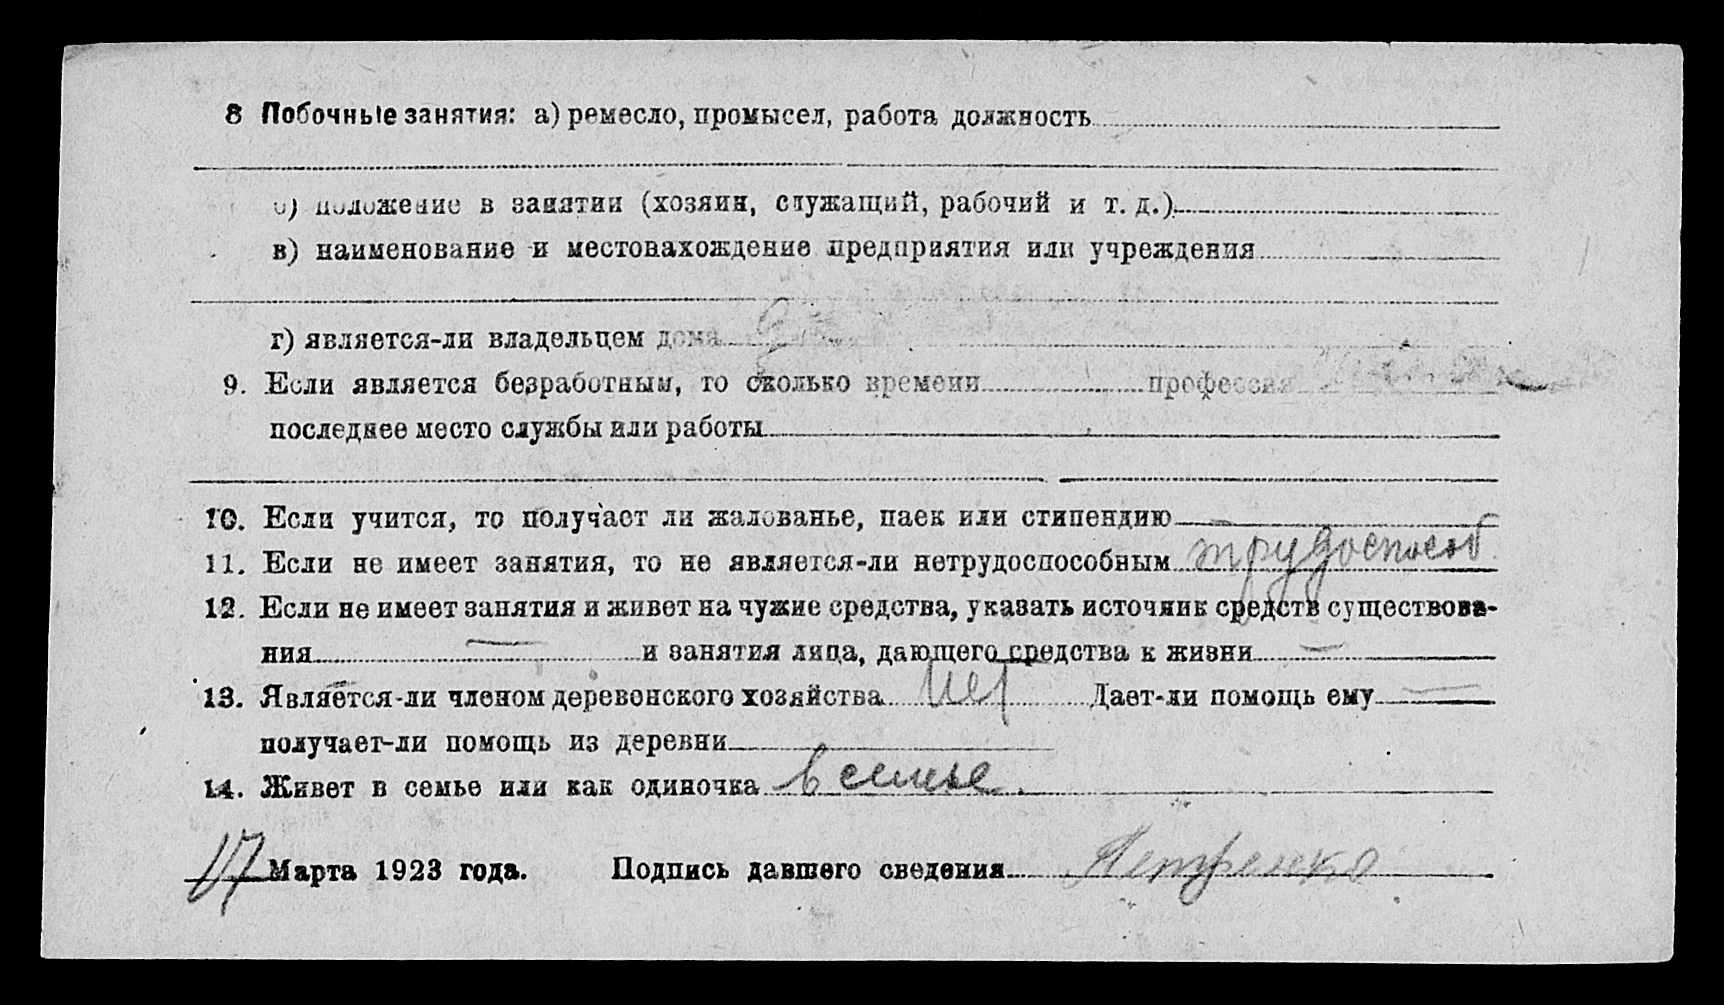 8 Побочные занятия: а) ремесло, промысел, работа должность
б) положение в занятии (хозяин, служащий, рабочий и т. д.)
в) наименование и местонахождение предприятия или учреждения
г) является-ли владельцем дома
9. Если является безработным, то сколько времени профессия
последнее место службы или работы
10. Если учится, то получает ли жалованье, паек или стипендию —
11. Если не имеет занятия, то не является-ли нетрудоспособным трудоспособ
12. Если не имеет занятия и живет на чужие средства, указать источник средств существова-
ния — и занятия лица, дающего средства к жизни —
13. Является-ли членом деревенского хозяйства нет Дает-ли помощь ему —
получает-ли помощь из деревни
14. Живет в семье или как одиночка в семье.
17 Марта 1923 года. Подпись давшего сведения Петренко